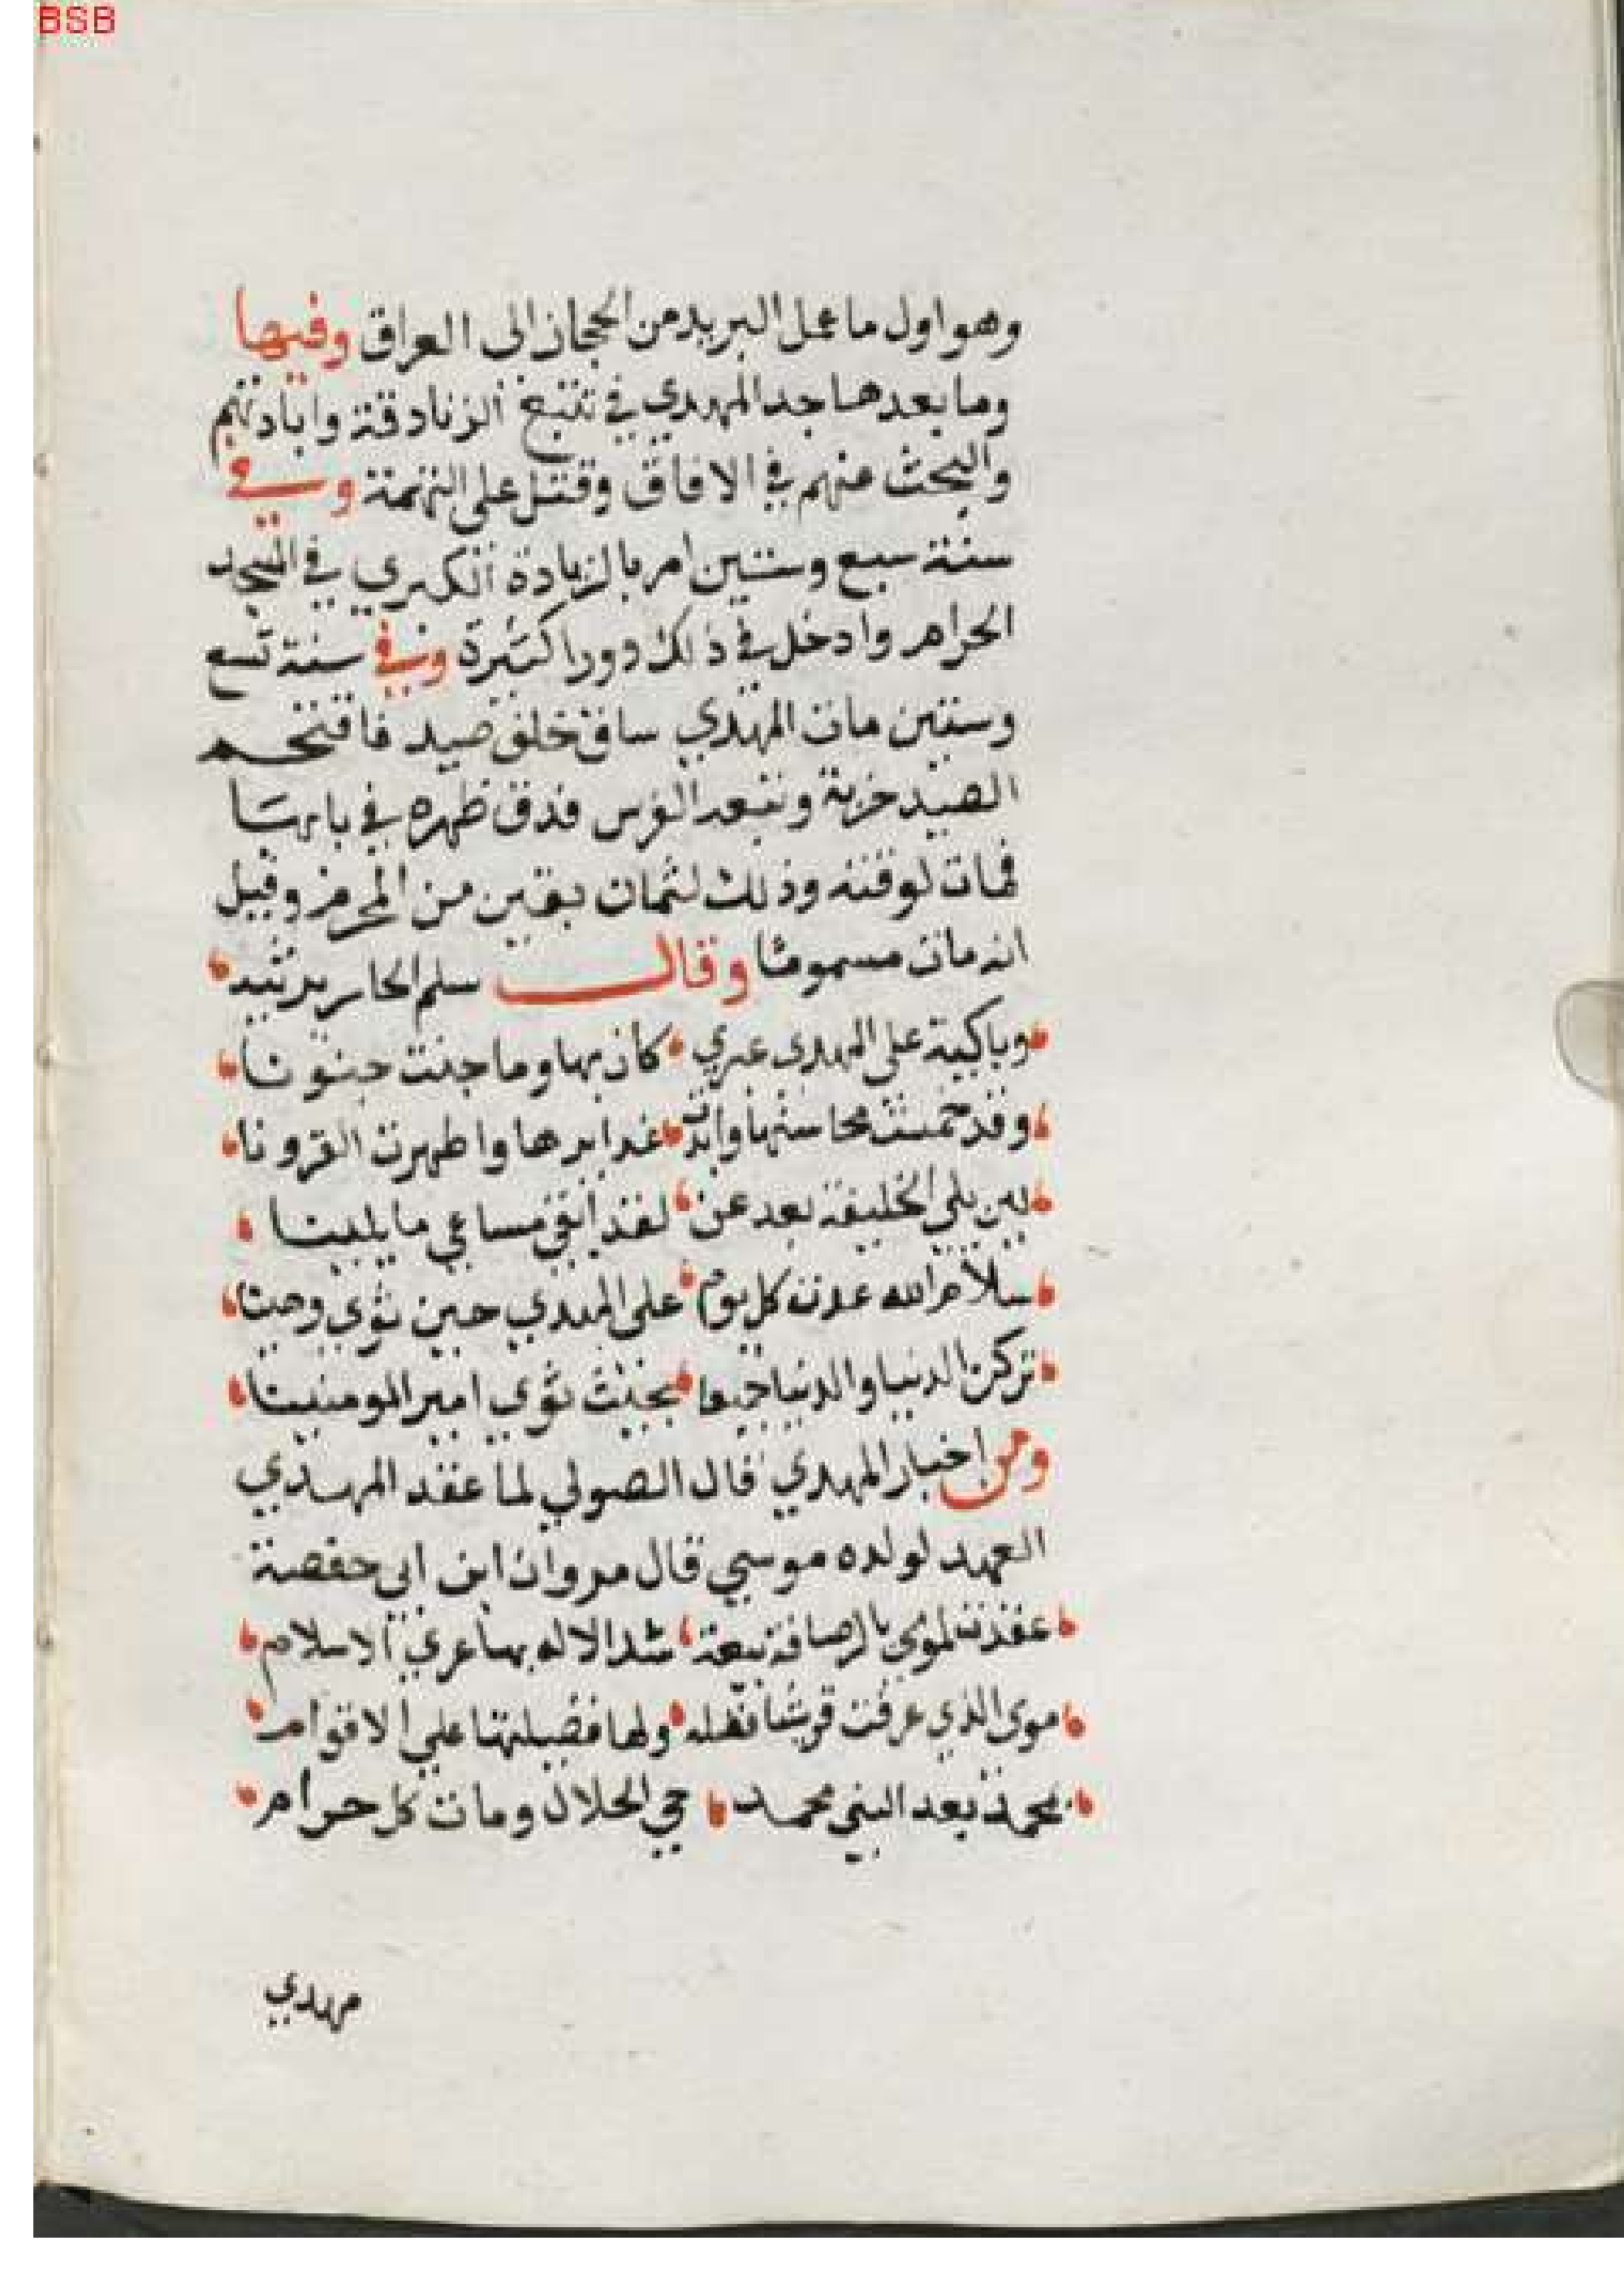 BSB
وهو اول ما عمل البريد من الحجاز الى العراق وفيها
وما بعدها جد المهدي في تتبع الزنادقة وابادتهم
والبحث عنهم في الافاق وقتل على التهمة وفي
سنة سبع وستين امر بالزيادة الكبري في المسجد
الحرام وادخل في ذلك دورا كثيرة وفي سنة تسع
وستين مات المهدي ساق خلف صيد فاقتحم
الصيد خربة وتبعه الفرس فدق ظهره في بابها
فمات لوقته وذلك لثمان بقين من المحرم وقيل
انه مات مسموما وقال سلم الخاسر يرثيه
وباكية على المهدى عبري كان بها وما جنت جنونا
وقد خمشت محاسنها وابدت غدايرها واظهرت القرونا
لين بلي الخليفة بعد عز لقد ابقي مساعي ما بلينا
سلام الله عدة كل يوم على المهدي حين ثوي وحينا
تركنا الدنيا والدنيا جميعا بحيث ثوي امير المومنينا
ومن اخبار المهدي قال الصولي لما عقد المهدي
العهد لولده موسي قال مروان ابن ابى حفصة
عقدت لموسى بالرصافة بيعة شد الاله بها عري الاسلام
موسى الذي عرفت قريش فضله ولها فضيلتها علي الاقوام
بمحمد بعد النبي محمد حيي الحلال ومات كل حرام
مهدي